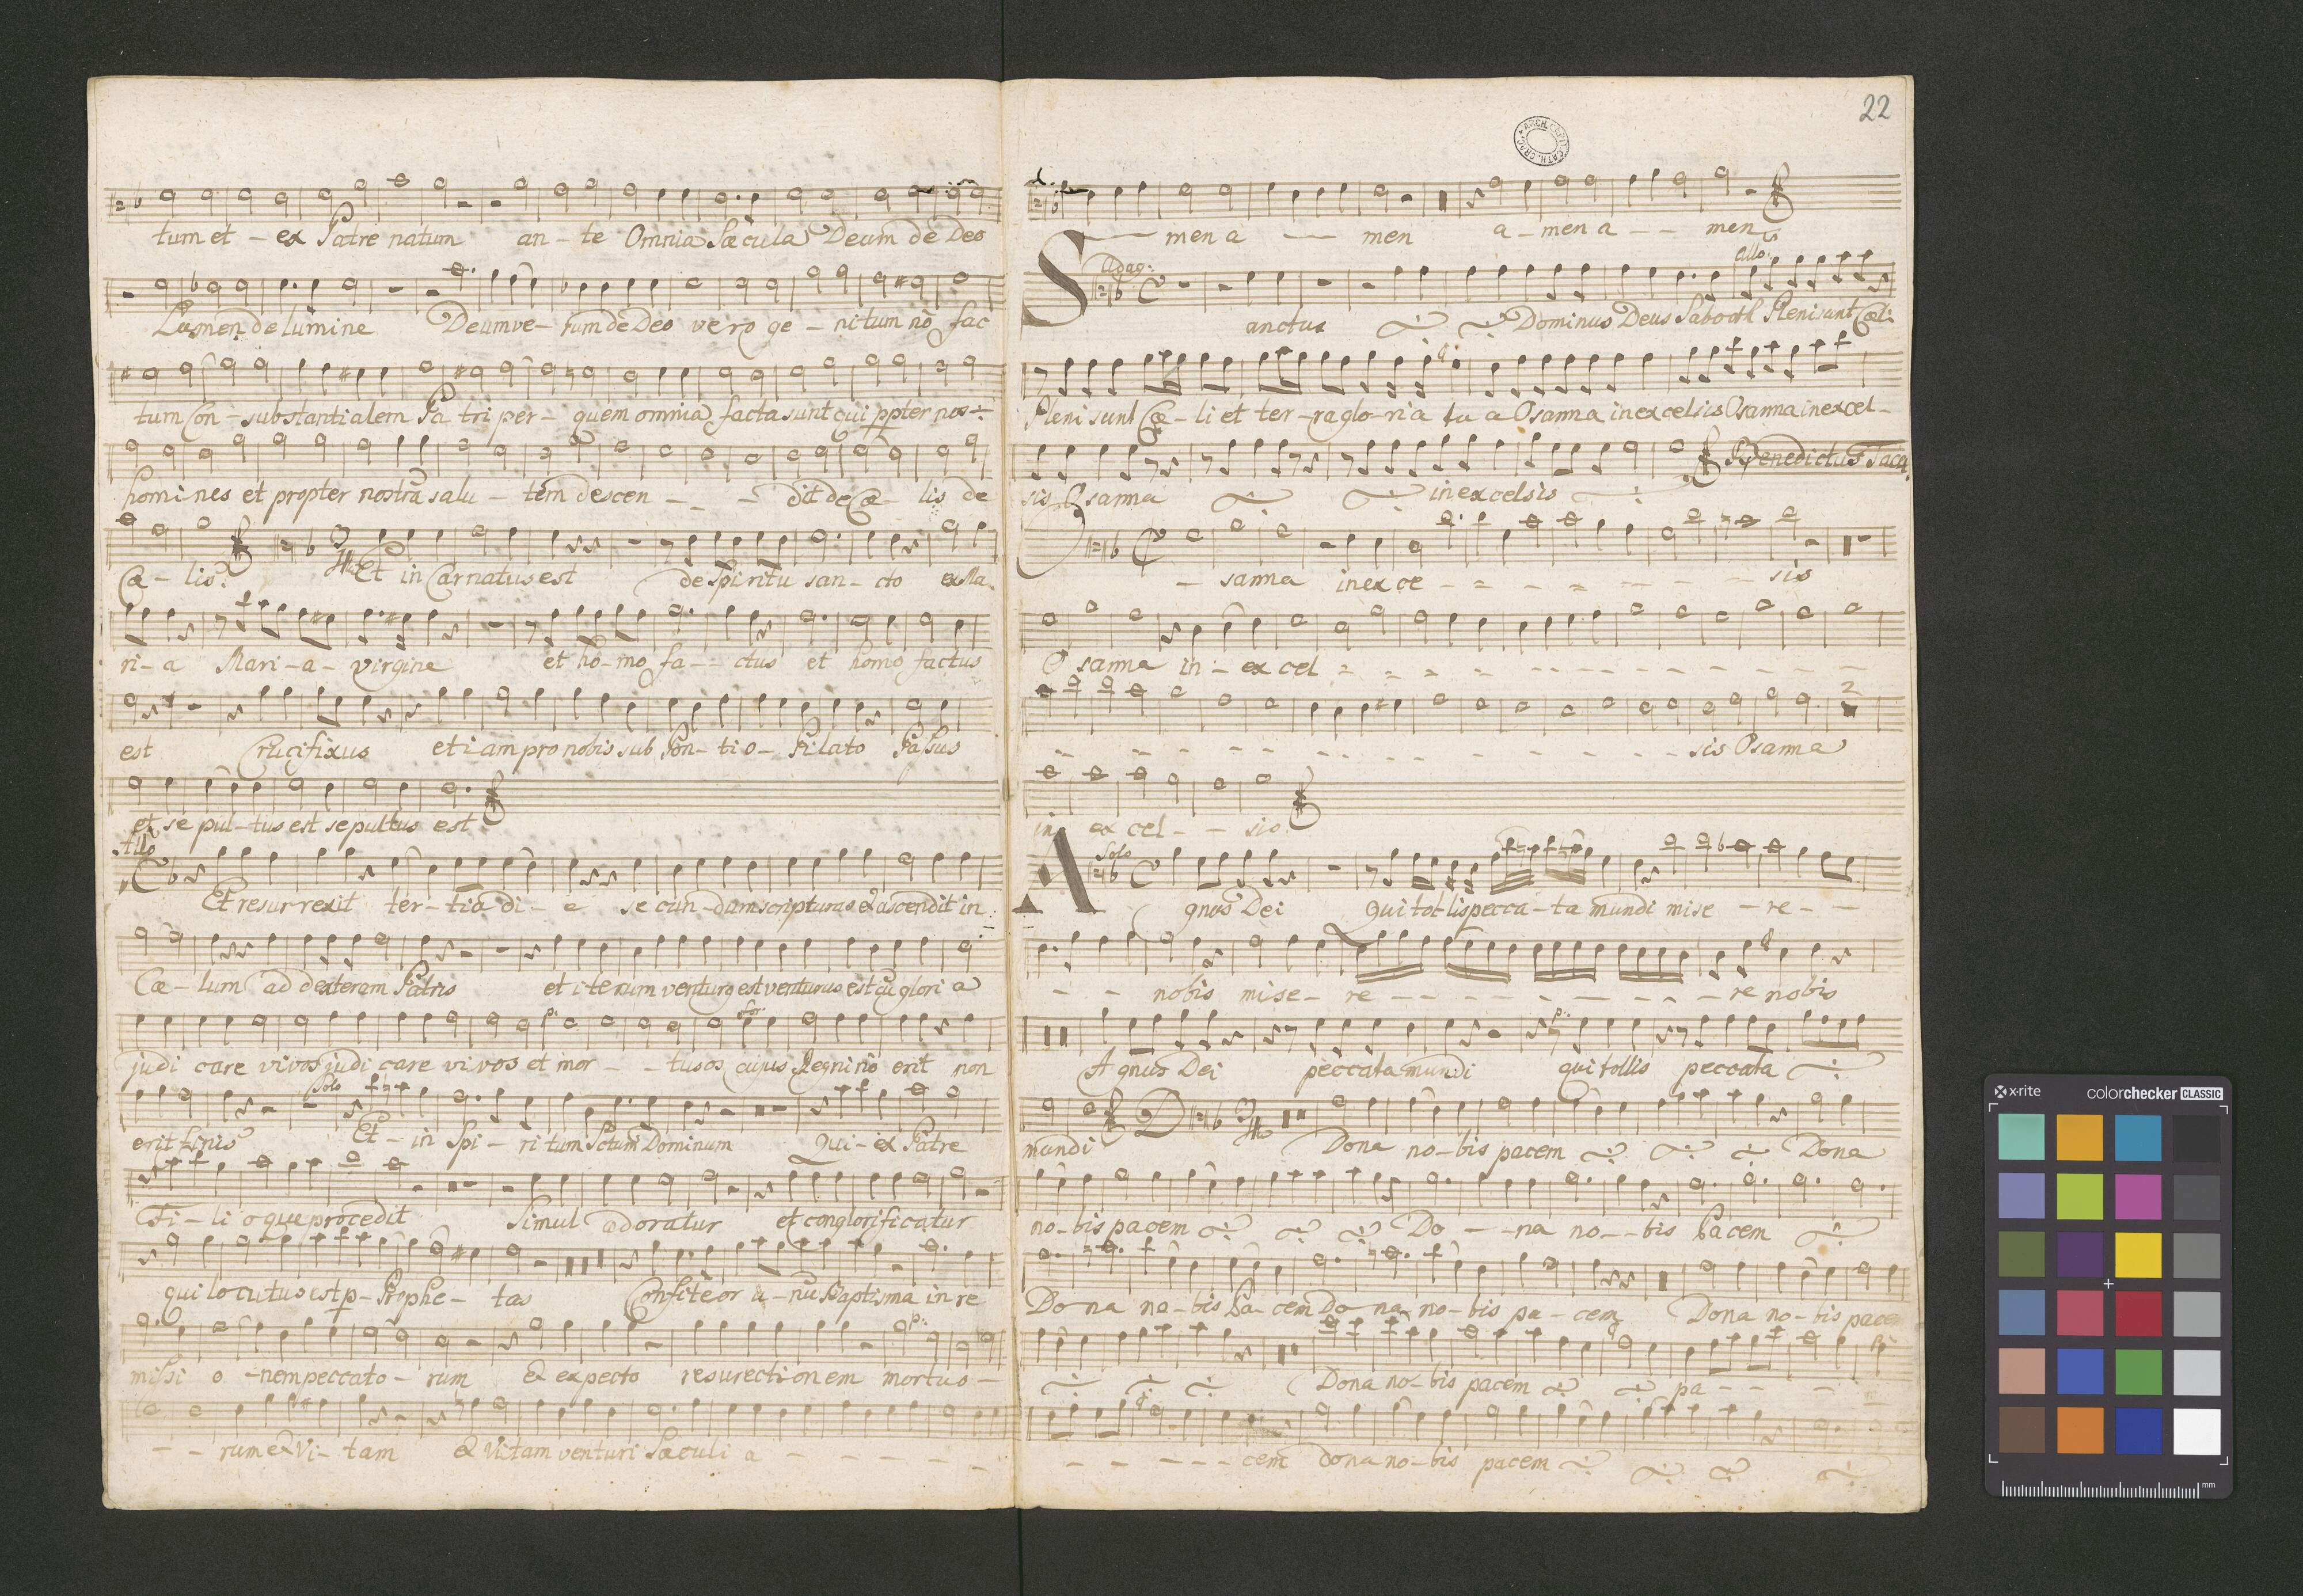 tum et - ex Patre natum an - te Omnia Sæcula Deum de Deo
Lumen de lumine Deum ve - rum de Deo vero ge - nitum nō fac
tum Con - substantialem Pa tri per - quem omnia facta sunt qui ppter nos
homines et propter nostrā salu - tem descen - - dit de Cæ - lis de
Cæ - lis.
Et in Carnatus est de Spiritu san - cto ex Ma
ri - a Mari - a - virgine et ho - mo fa - - ctus et homo factus
est Crucifixus eti am pro nobis sub Pon - ti o - Pilato Passus
et se pul - tus est sepultus est
Allo
Et resur rexit ter - tia di - e se cun - dam scripturas & ascendit in
Cæ - lum ad dexteram Patris et i te rum venturg est venturus est cū glori a
p: for:
judi care vivos judi care vi vos et mor - - tuos cujus Regni nō erit non
Solo
erit finis Et - in Spi - ri tum Sctum Dominum Qui - ex Patre
Fi - li oque procedit Simul adoratur et conglorificatur
qui locutus est p - Prophe - tas Confiteor u - nū Baptisma in re
p:
missi o - nem peccato - rum & expecto resurecti onem mortuo -
- - rum & Vi - tam & Vitam venturi Sæculi a - - - - -
22
ARCH. CAPIT. CATH. CRAC.
- men a - - men a - men a - - men
Adag: allo:
Sanctus Dominus Deus Saboath Pleni sunt Cæli
Pleni sunt Cæ - li et ter - ra glo - ri a tu a Osanna in excelsis Osanna in excel -
sis Osanna in excelsis Benedictus Tacet
O - sanna in ex ce - - - - - - - sis
O sanna in - ex cel - - - - - - - - - -
2
- - - - - - - - - - sis Osanna
in ex cel - - sis
Solo
Agnus Dei Qui tol lis pecca - ta mundi mise - re - -
- - nobis mise - re - - - - - - - - re nobis
p:
Agnus Dei peccata mundi qui tollis peccata
mundi Dona no - bis pacem Dona
no - bis pacem Do - - na no - - bis Pacem
Do na no - bis Pa - cem Do na no - bis pa - cem Dona no - bis pacem
Dona no - bis pacem pa - - -
- - - - - cem dona no - bis pacem
x-rite
colorchecker CLASSIC
mm